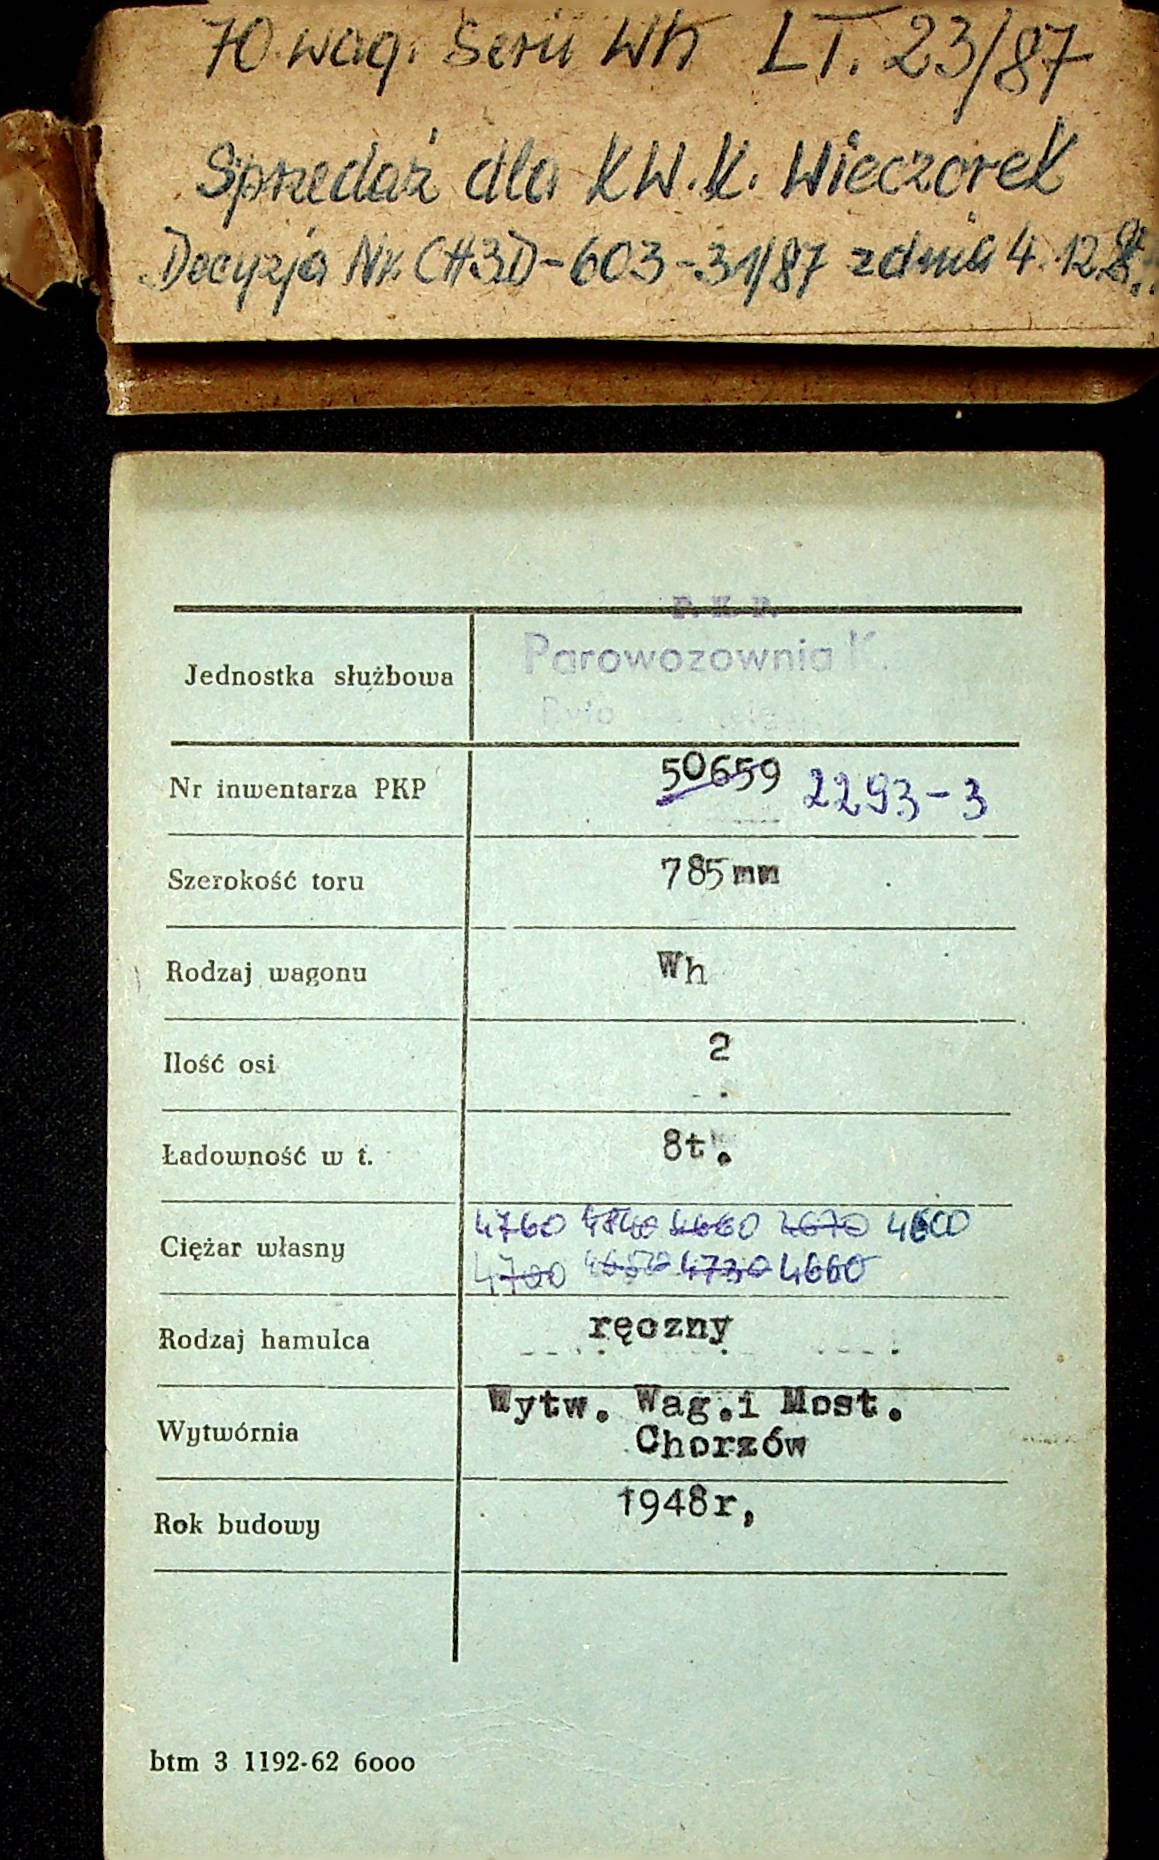 70 wag. Serii Wh LT. 23/87
Sprzedaż dla KW.K. Wieczorek
Decyzja Nr. CH3D-603-31/87 z dnia 4.12.
P. K. P.
Jednostka służbowa Parowozownia K.
Nr inwentarza PKP 50659 2293-3
Szerokość toru 785mm
Rodzaj wagonu Wh
Ilość osi 2
Ładowność w t. 8t.
4760 4840 4660 4670 4600
Ciężar własny
4700 4650 4730 4660
Rodzaj hamulca ręczny
Wytw. Wag.i Most.
Wytwórnia
Chorzów
Rok budowy 1948r,
btm 3 1192-62 6000